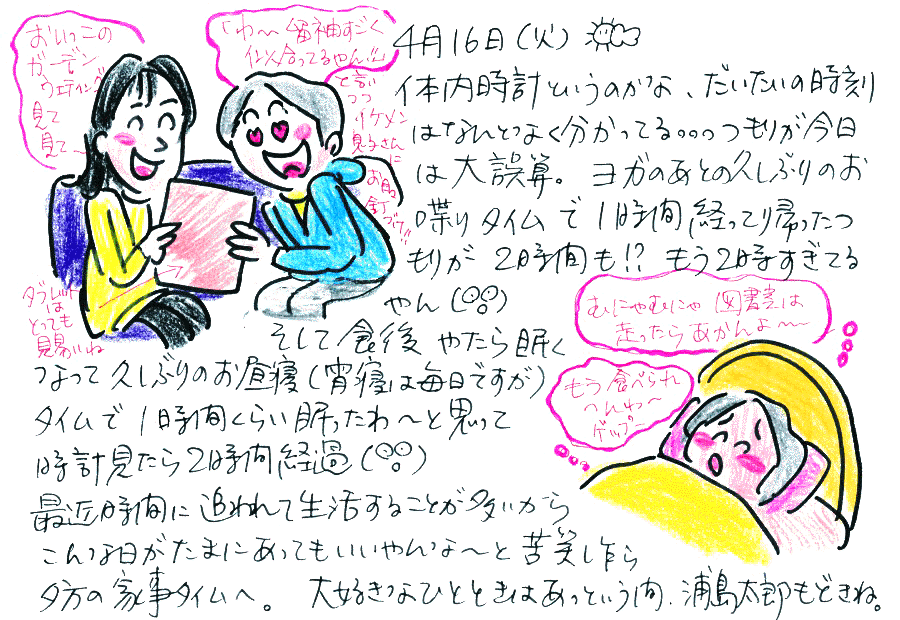 おいっこの
ガーデン
ウエディング
見て
見て〜
「わ〜留袖すごく
似合ってるやん!!」
と言い
つつ
イケメン
息子さんに
お目
釘づけ!!
タブレット
はとっても
見易いね
4月16日(火)
体内時計というのかな、だいたいの時刻
はなんとなく分かってる。。。つもりが今日
は大誤算。ヨガのあとの久しぶりのお
喋りタイムで1時間経って帰ったつ
もりが2時間も!? もう2時すぎてる
やん
そして食後やたら眠く
なって久しぶりのお昼寝(宵寝は毎日ですが)
タイムで1時間くらい眠ったわ〜と思って
時計見たら2時間経過
最近時間に追われて生活することが多いから
こんな日がたまにあってもいいやんな〜と苦笑しながら
夕方の家事タイムへ。大好きなひとときはあっという間、浦島太郎もどきね。
むにゃむにゃ図書室は
走ったらあかんよ〜
もう食べられ
へんわ〜
ゲップ〜